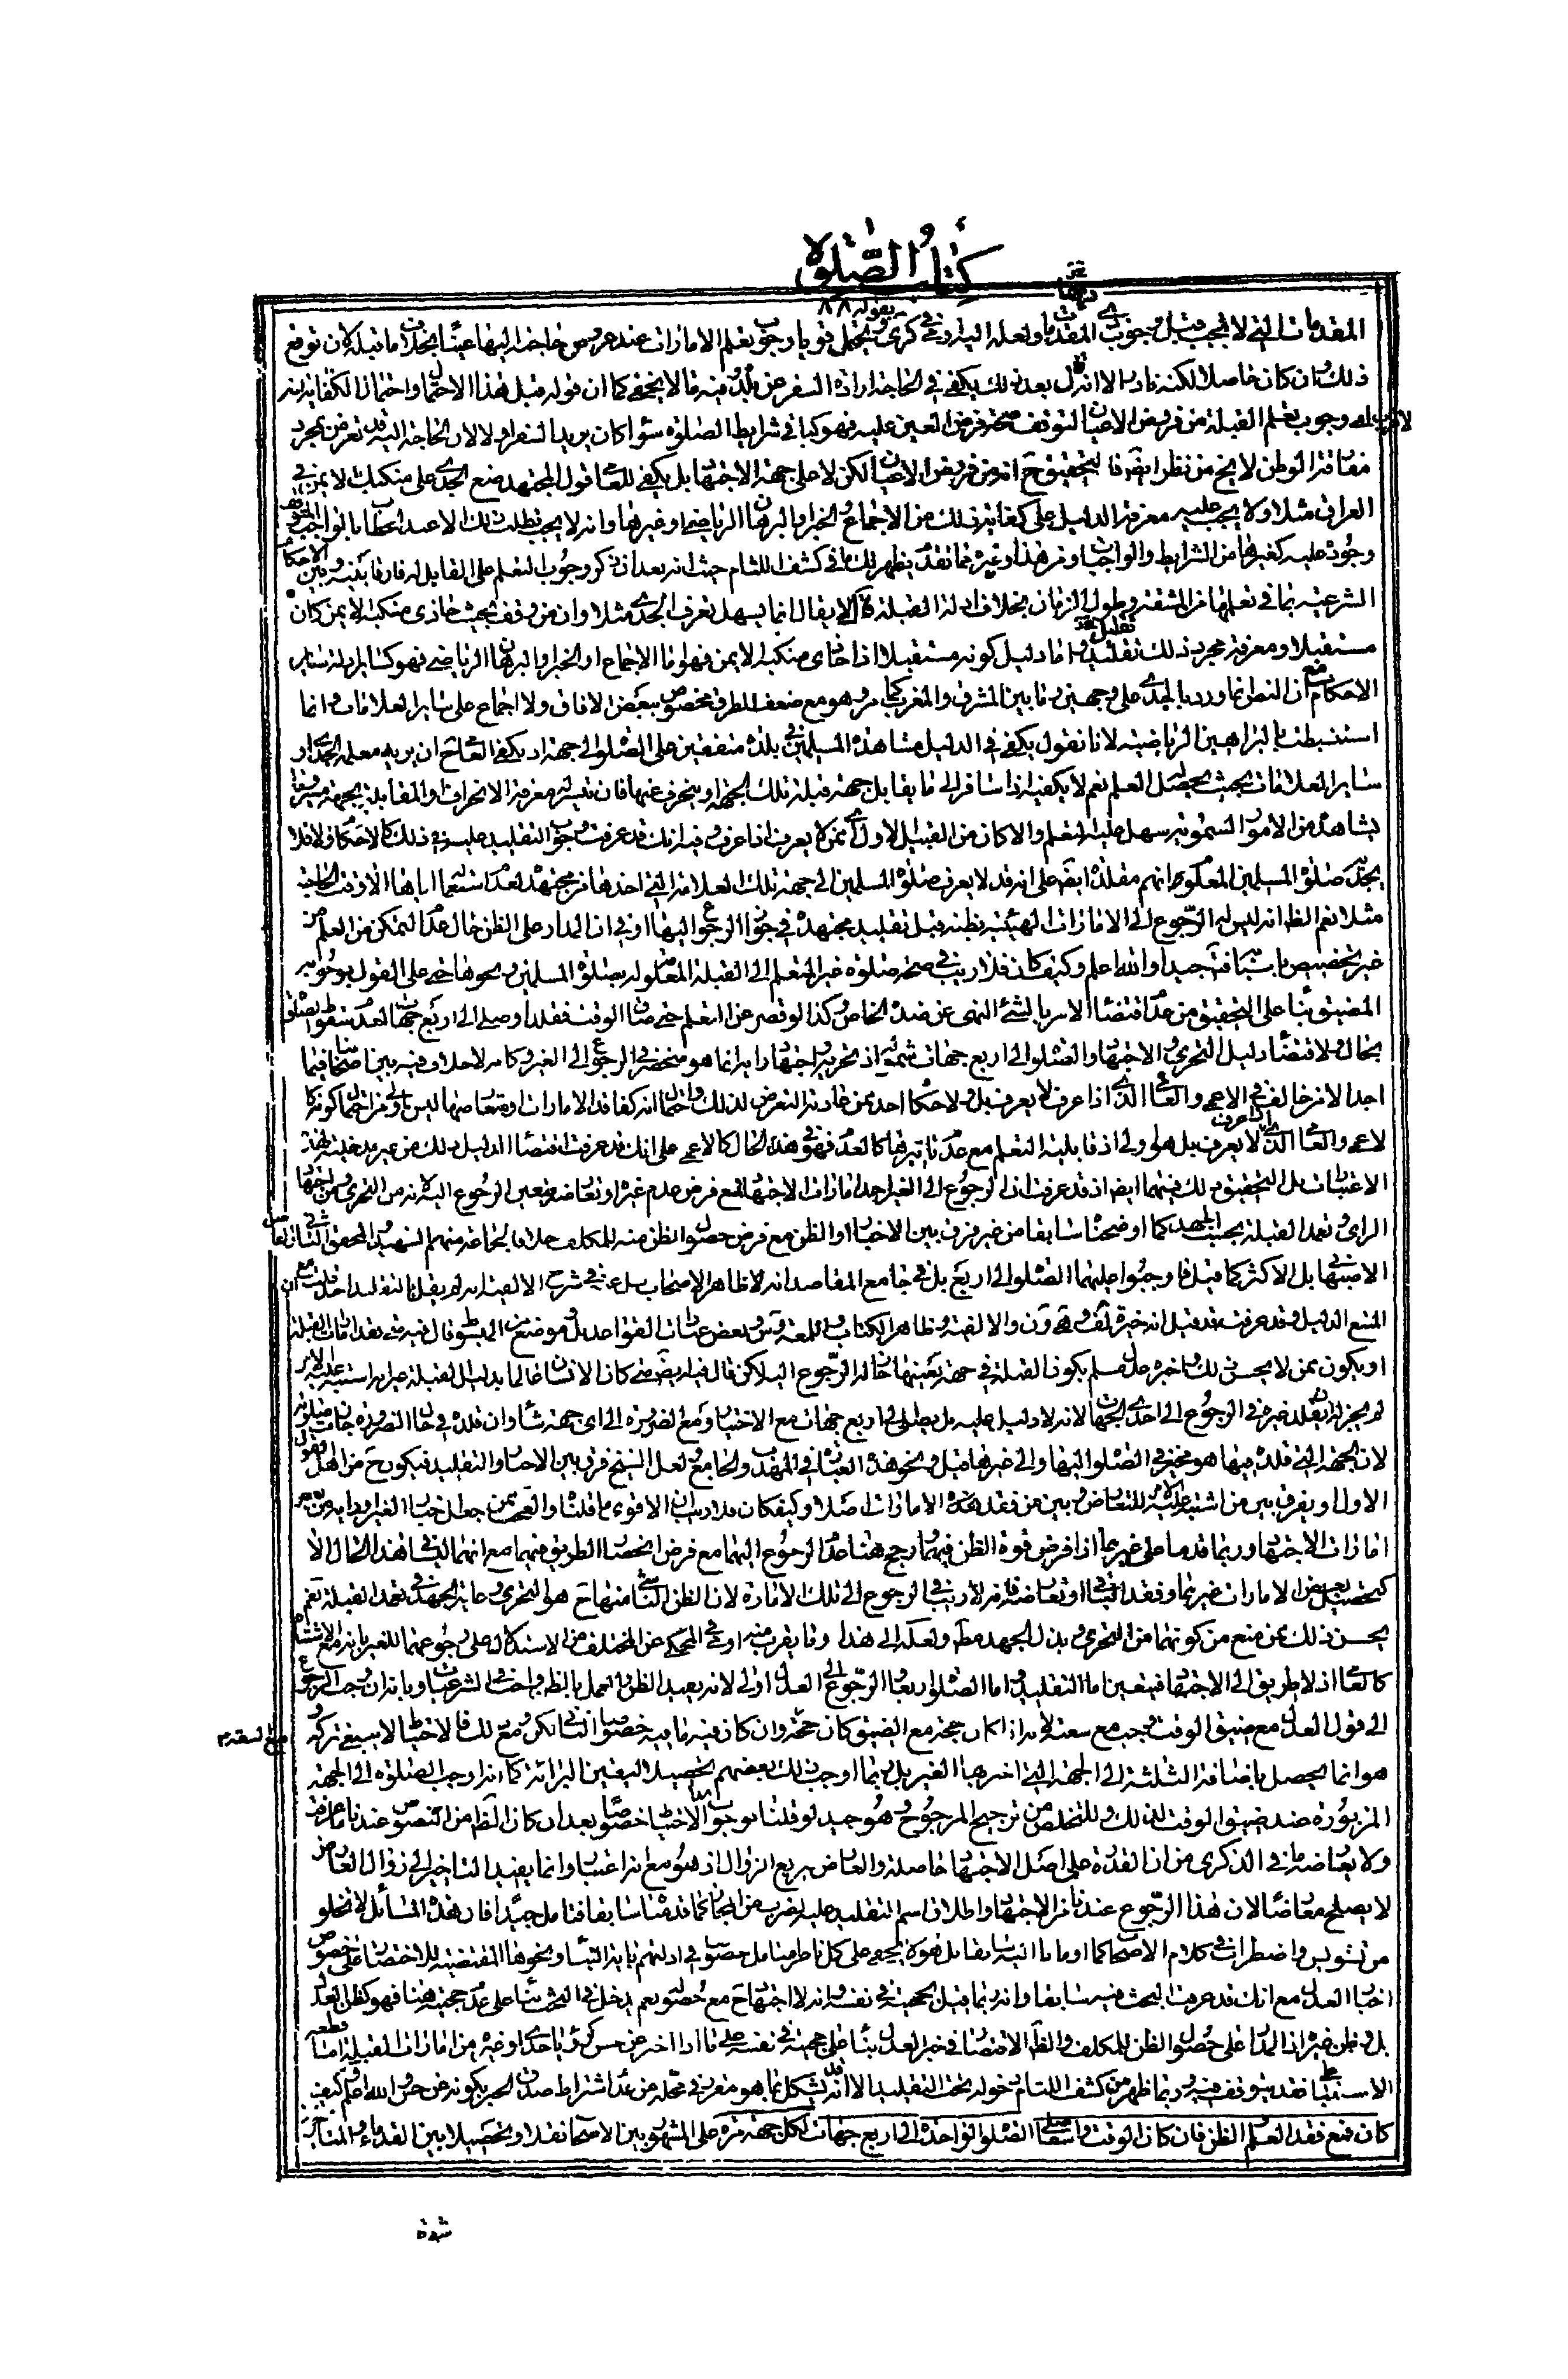 كتاب الصلوة
المقدمات التي لا تجب قبل وجوب المقدمة ولعله اليه في كرى ويحتمل قويا وجوب تعلم الامارات عند عروض حاجته اليها عينا بخلاف ما قبله لان توقع
ذلك وان كان حاصلا لكنه نادر الا انه قال بعد ذلك يكفي في الحاجة ارادة السفر عن بلده وفيه ما لا يخفى كما ان قوله قبل هذا الاحتمال واحتمال الكفاية
وجوب تعلم القبلة من فروض الاعيان لتوقف صحة فرض العين عليه فهو كباقي شرايط الصلوة سواء كان يريد السفر ام لا لان الحاجة اليه قد تعرض بمجرد
مفارقة الوطن لا يخ من نظر ايضا فالتحقيق ح انه من فروض الاعيان لكن لا على جهة الاجتهاد بل يكفي للعامي قول المجتهد ضع الجدي على منكبك الايمن في
العراق مثلا ولا يجب عليه معرفة الدليل على كفاية ذلك من الاجماع والخبر والبرهان الرياضي وغيرها وانه لا يجب تطلب ذلك الا عند الخطاب بالواجب
وجوده عليه كغيرها من الشرايط والواجبات ومن هذا وغيره مما تقدم يظهر لك ما في كشف اللثام حيث انه بعد ان ذكر وجوب التعلم على القابل له فارقا بينه وبين الاحكام
الشرعية بما في تعلمها من المشقة وطول الزمان بخلاف ادلة القبلة قال لا يقال انما يسهل تعرف الجدي مثلا وان من وقف بحيث حاذى منكبه الايمن كان
مستقبلا ومعرفة مجرد ذلك تقليد واما دليل كونه مستقبلا اذا حاذى منكبه الايمن فهو اما الاجماع او الخبر او البرهان الرياضي فهو كساير ادلة ساير
الاحكام مع ان النص انما ورد بالجدي على وجهين وما بين المشرق والمغرب كما مر وهو مع ضعف الطرق مخصوص ببعض الافاق ولا اجماع على ساير العلامات وانما
استنبطت بالبراهين الرياضية لانا نقول يكفي في الدليل مشاهدة المسلمين في بلده متفقين على الصلوة الى جهة اذ يكفي العامي ح ان يريه معلمه الجدي او
ساير العلامات بحيث يحصل العلم نعم لا يكفيه اذا سافر الى ما يقابل جهة قبلة تلك الجهة او ينحرف عنها فان تيسر له معرفة الانحراف والمقابلة بجهة
يشاهده من الامور السموتيه سهل عليه التعلم والا كان من القبيل الاول اي ممن لا يعرف اذا عرف وفيه انك قد عرفت وجوب التقليد عليه في ذلك كالاحكام والا فلا
يجديه صلوة المسلمين المعلوم انهم مقلدة ايضا على انه قد لا يعرف صلوة المسلمين الى جهة تلك العلامة التي اخذها من مجتهده لعدم استعمالها اياها الا وقت الحاجة
مثلا نعم الظ انه ليس له الرجوع الى الامارات الهيئية بظنه قبل تقليد مجتهده في جواز الرجوع اليها او في ان المدار على الظن حال عدم التمكن من العلم من
غير تخصيص باسباب فت جيدا والله اعلم وكيف كان فلا ريب في صحة صلوة غير المتعلم الى القبلة المعلومة له بصلوة المسلمين ونحوها حتى على القول بوجوبه
المضيق بناء على التحقيق من عدم اقتضاء الامر بالشئ النهي عن ضده الخاص وكذا لو قصر عن التعلم حتى ضاق الوقت فقلد او صلى الى اربع جهات لعدم سقوط الصلوة
بحال ولاقتضاء دليل التحري والاجتهاد والصلوة الى اربع جهات شموله اذ تحريه واجتهاده انما هو منحصر في الرجوع الى الغير وكانه لا خلاف فيه بين اصحابنا فيما
اجد الا من خالف في الاعمى والعامي الذي اذا عرف لا يعرف بل ولا حكاه احد ممن عادته التعرض لذلك واحتمال انه كفاقد الامارات وتعارضها ليس باولى من احتمال كونه كا
لاعمى والعامي الذي اذا عرف لا يعرف بل هو اولى اذ قابلية التعلم مع عدم تاثيرها كالعدم فهو في هذه الحال كالاعمى على انك قد عرفت اقتضاء الدليل ذلك من غير مدخلية لهذه
الاعتبارات بل التحقيق ذلك فيهما ايضا اذ قد عرفت ان الرجوع الى الغير احد امارات الاجتهاد فمع فرض عدم غيره او تعارضه يتعين الرجوع اليه لانه من التحري ومن اجتهاد
الراي وتعمد القبلة بحسب الجهد كما اوضحناه سابقا من غير فرق بين الاخبار او الظن مع فرض حصول الظن منه للمكلف خلافا لجماعة منهم الشهيد والمحقق الثاني
الاصبهاني بل الاكثر كما قيل فاوجبوا عليهما الصلوة الى اربع بل في جامع المقاصد انه لا ظاهر الاصحاب بل عنه في شرح الالفية انه لم يقل بالتقليد احد قلت مع ان
المتبع الدليل وقد عرفت قد قيل انه خيرة لف وهي ون والالفية وظاهر الكتاب واللمعة وس وبعض عبارات القواعد بل وموضع من المبسوط قال فيه متى فقد امارات القبلة
او يكون ممن لا يحسن ذلك واخبره عدل مسلم بكون القبلة في جهة بعينها جاز له الرجوع اليه لكن قال فيه ايضا متى كان الانسان عالما بدليل القبلة غير انه اشتبه عليه الامر
لم يجز له ان يقلد غيره في الرجوع الى احدى الجهات لانه لا دليل عليه بل يصلي الى اربع جهات مع الاختيار ومع الضرورة الى اى جهة شاء وان قلده في حال الضرورة جازت صلوته
لان الجهة التي قلده فيها هو مخير في الصلوة اليها والى غيرها قيل ونحو هذه العبارة في المهذب والجامع ولعل الشيخ فرق بين الاخبار والتقليد فيكون ح من اهل القول
الاول او يفرق بين من اشتبه عليه الامر للتعارض وبين من فقد هذه الامارات اصلا وكيف كان فلا ريب ان الاقوى ما قلناه والعجب ممن جعل اخبار الغير ورايه من بعض
امارات الاجتهاد وربما قدمها على غيرها اذا فرض قوة الظن فيهما ورجح هنا عدم الرجوع اليهما مع فرض انحصار الطريق فيهما مع انهما ليسا في هذا الحال الا
كتحصيل بعض الامارات غيرهما وفقد الباقي او تعارضه فانه لا ريب في الرجوع الى تلك الامارة لان الظن الناشئ منها ح هو التحري وغاية الجهد في تعمد القبلة نعم
يحسن ذلك ممن منع من كونهما من التحري وبذل الجهد مط ولعله الى هذا وما يقرب منه اومى في المحكي عن المختلف من الاستدلال على رجوعهما للغير بانه مع الاشتباه
كالعامي اذ لا طريق الى الاجتهاد فيتعين اما التقليد واما الصلوة اربعا والرجوع الى العدل اولى لانه يفيد الظن والعمل بالظن واجب في الشرعيات وبانه ان وجب الرجوع
الى قول العدل مع ضيق الوقت وجب مع سعته لانه اذا كان حجة مع الضيق كان حجة وان كان فيه ما فيه خصوصا الثاني لكن ومع ذلك فالاحتياط لا ينبغي تركه
هو انما يحصل باضافة الثلثة الى الجهة التي اخبر بها الغير بل ربما اوجب ذلك بعضهم تحصيلا لليقين البرائة كما انه اوجب الصلوة الى الجهة
المزبورة عند ضيق الوقت لذلك وللتخلص من ترجيح المرجوح وهو جيد لو قلنا بوجوب هذا الاحتياط خصوصا بعد ان كان الظ من النصوص عندنا ما عرفت
ولا يعارضه ما في الذكرى من ان القدرة على اصل الاجتهاد حاصلة والعارض سريع الزوال اذ هو مع انه اعتبار وانما يفيد التاخير الى زوال العارض
لا يصلح معارضا لان هذا الرجوع عندنا من الاجتهاد واطلاق اسم التقليد عليه بضرب من المجاز كما قدمناه سابقا فتامل جيدا فان هذه المسائل لا تخلو
من تشويش واضطراب في كلام الاصحاب كما اومانا اليه سابقا بل هو لا يخفى على كل ناظر متامل خصوصا في ادلتهم باية النبأ ونحوها المقتضية للاختصاص على خصوص
اخبار العدل مع انك قد عرفت البحث فيه سابقا وانه ربما قيل بحجيته في نفسه وانه لا اجتهاد ح مع حصوله نعم يدخل في البحث بناء على عدم حجيته هنا فهو كظن العدل
بل وظن غيره اذ المدار على حصول الظن للمكلف والظ الاقتصار في خبر العدل بناء على حجيته في نفسه على ما اذا اخبر عن حس كرؤيا جدي او غيره من امارات القبلة اما
الاستنباط فقد يتوقف فيه وربما ظهر من كشف اللثام دخوله تحت التقليد الا انه قد يشكل بما هو مقرر في محله من عدم اشتراط صدق الخبر بكونه عن حس والله اعلم وكيف
كان فمع فقد العلم والظن فان كان الوقت واسعا صلى الصلوة الواحدة الى اربع جهات لكل جهة مرة على المشهور بين الاصحاب نقلا وتحصيلا بين القدماء والمتاخرين